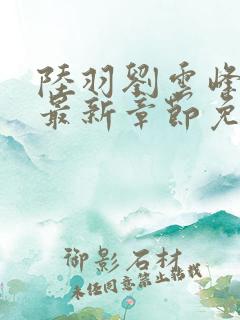 陸羽劉雲峰
最新章節免
御影石材
未经同意禁止转载